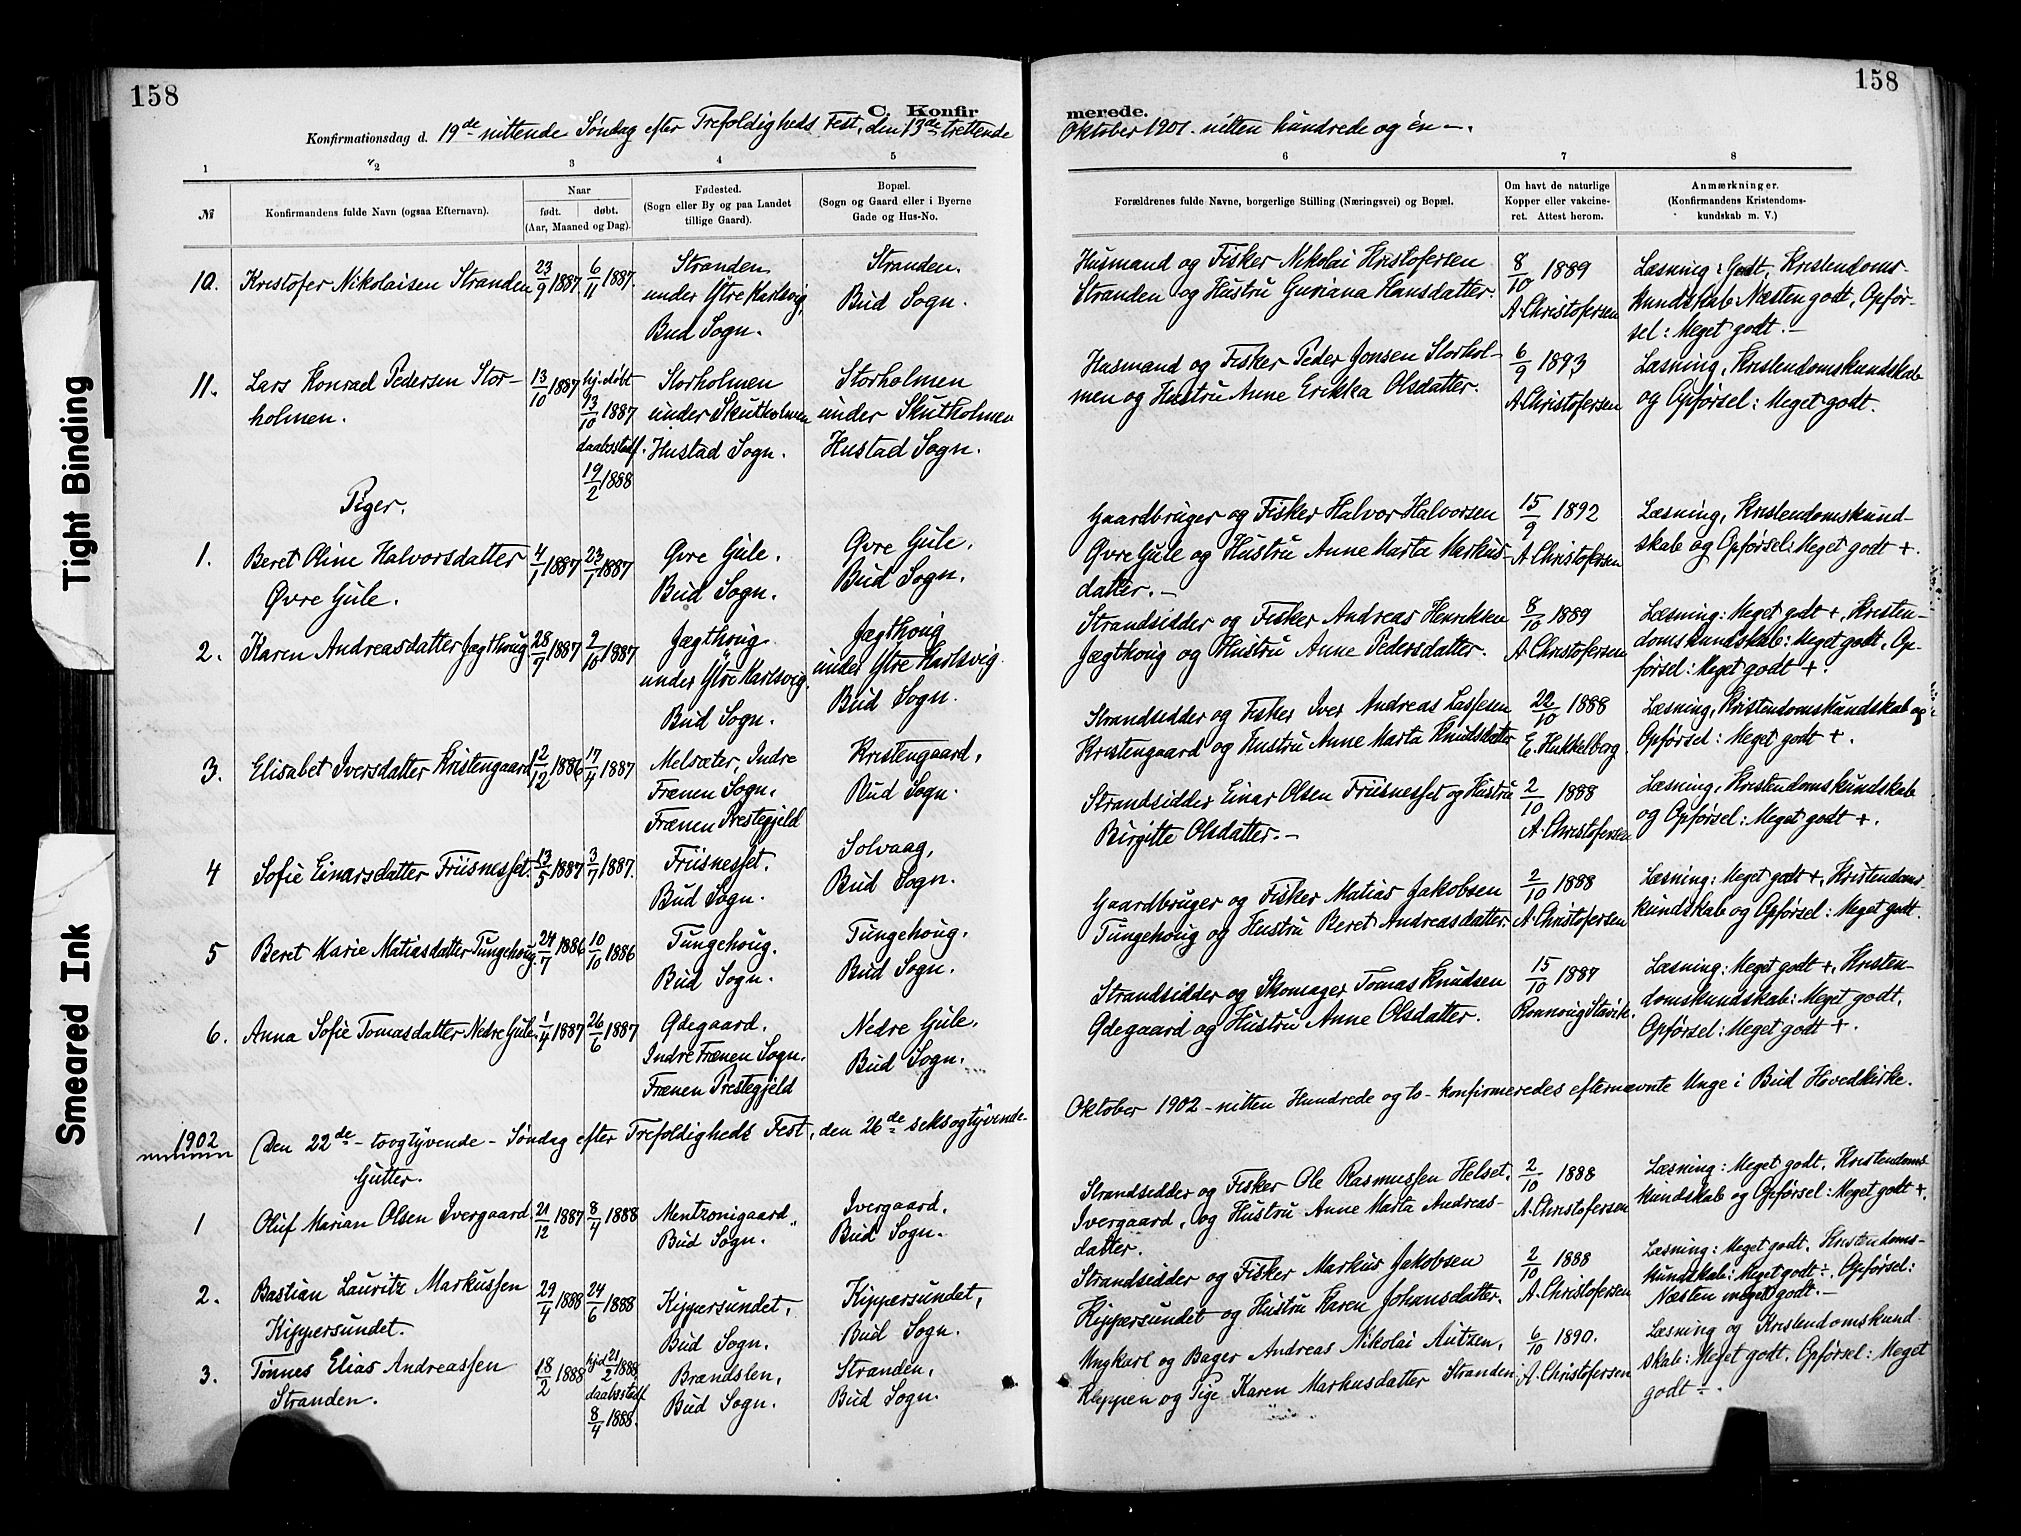 158
C. Konfir
Konfirmationsdag d. 19de nittende Søndag efter Trefoldigheds Fest, den 13de trettende
1 2 3 4 5
№
Konfirmandens fulde Navn (ogsaa Efternavn).
Naar
født. døbt.
(Aar, Maaned og Dag).
Fødested.
(Sogn eller By og paa Landet
tillige Gaard).
Bopæl.
(Sogn og Gaard eller i Byerne
Gade og Hus-No.
10. Kristofer Nikolaisen Stranden 23/9 1887 6/11 1887. Stranden Stranden.
under Ytre Karlsvig, Bud Sogn.
Bud Sogn.
11. Lars Konrad Pedersen Stor- 13/10 1887 hj.døbt Storholmen Storholmen
holmen. 1887 under Skutholmen under Skutholmen
daabsstadf. Hustad Sogn. Hustad Sogn.
19/2 1888
Piger.
1. Beret Oline Halvorsdatter 4/1 1887 23/1 1887 Øvre Gule. Øvre Gule.
Øvre Gule. Bud Sogn. Bud Sogn.
2. Karen Andreasdatter Jægthoug 28/7 1887 2/10 1887 Jægthoug Jægthoug
under Ytre Karlsvig. under Ytre Karlsvig.
Bud Sogn. Bud Sogn.
3. Elisabet Iversdatter Kristengaard 12/12 1886 17/4 1887 Melsæter, Indre Kristengaard,
Frænen Sogn. Bud Sogn.
Frænen Prestegjeld
4 Sofie Einarsdatter Friisnesset. 13/5 1887 3/7 1887. Friisnesset. Solvaag,
Bud Sogn. Bud Sogn.
5 Beret Marie Matiasdatter Tungehoug. 24/7 1886 10/10 1886 Tungehoug. Tungehoug.
Bud Sogn. Bud Sogn.
6. Anna Sofie Tomasdatter Nedre Gule. 1/4 1887 26/6 1887 Ødegaard. Nedre Gule.
Indre Frænen Sogn. Bud Sogn.
Frænen Prestegjeld
1902 Den 22de - toogtyvende - Søndag efter Trefoldigheds Fest, den 26de seksogtyvende
Gutter.
1 Oluf Marian Olsen Ivergaard 21/12 1887 8/7 1888 Mentzonigaard Ivergaard.
Bud Sogn. Bud Sogn.
2. Bastian Lauritz Markussen 29/4 1888 24/6 1888 Kippersundet, Kippersundet,
Kippersundet. Bud Sogn. Bud Sogn.
3. Tønnes Elias Andreassen 18/2 1888 hjd 21/2 1888 Brændslen, Stranden,
Stranden. daabsstadf. Bud Sogn. Bud Sogn.
8/4 1888.
158
merede.
Oktober 1901. nitten hundrede og én -.
6 7 8
Forældrenes fulde Navne, borgerlige Stilling (Næringsvei) og Bopæl.
Om havt de naturlige
Kopper eller vakcine-
ret. Attest herom.
Anmærkninger.
(Konfirmandens Kristendoms-
kundskab m. V.)
Husmand og Fisker Nikolai Kristofersen 8/10 1889 Læsning: Godt, Kristendoms-
Stranden og Hustru Guriana Hansdatter. A. Christofersen kundskab: Næsten godt, Opfør-
sel: Meget godt. -
Husmand og Fisker Peder Jonsen Storhol- 6/9 1893 Læsning, Kristendomskundskab
men og Hustru Anne Erikka Olsdatter. A. Christofersen og Opførsel: Meget godt.
Gaardbruger og Fisker Halvor Halvorsen 15/9 1892 Læsning, Kristendomskund-
Øvre Gule og Hustru Anne Marta Markus- A. Christofersen skab og Opførsel: Meget godt +.
datter. -
Strandsidder og Fisker Andreas Henriksen 8/10 1889 Læsning: Meget godt +, Kristen-
Jægthoug og Hustru Anne Pedersdatter. A. Christofersen domskundskab: Meget godt, Op-
førsel: Meget godt +.
Strandsidder og Fisker Iver Andreas Lassesen 22/10 1888 Læsning, Kristendomskundskab og
Kristengaard og Hustru Anne Marta Knudsdatter E. Hukkelberg. Opførsel: Meget godt +.
Strandsidder Einar Olsen Friisnesset og Hustru 2/10 1888 Læsning, Kristendomskundskab
Birgitte Olsdatter. - A. Christofersen og Opførsel: Meget godt +.
Gaardbruger og Fisker Matias Jakobsen 2/10 1888 Læsning: Meget godt +, Kristendoms-
Tungehoug og Hustru Beret Andreasdatter. A. Christofersen kundskab og Opførsel: Meget godt.
Strandsidder og Skomager Tomas Knudsen 15/10 1887 Læsning: Meget godt +, Kristen-
Ødegaard og Hustru Anne Olsdatter. domskundskab: Meget godt,
Opførsel: Meget godt +.
Oktober 1902 - nitten Hundrede og to - konfirmeredes efternævnte Unge i Bud Hovedkirke.
Strandsidder og Fisker Ole Rasmussen Helset, 2/10 1888 Læsning: Meget godt, Kristendoms-
Ivergaard, og Hustru Anne Marta Andreas- A. Christofersen kundskab og Opførsel: Meget godt +.
datter.
Strandsidder og Fisker Markus Jakobsen 2/10 1888 Læsning: Meget godt. Kristendoms-
Kippersundet og Hustru Karen Johansdatter. A. Christofersen kundskab: Meget godt ÷, Opførsel:
Næsten meget godt. -
Ungkarl og Bager Andreas Nikolai 6/10 1890. Læsning og Kristendomskund-
Kleppen og Pige Karen Markusdatter Stranden. A. Christofersen skab: Meget godt, Opførsel: Meget
godt ÷.
Tight Binding
Smeared Ink